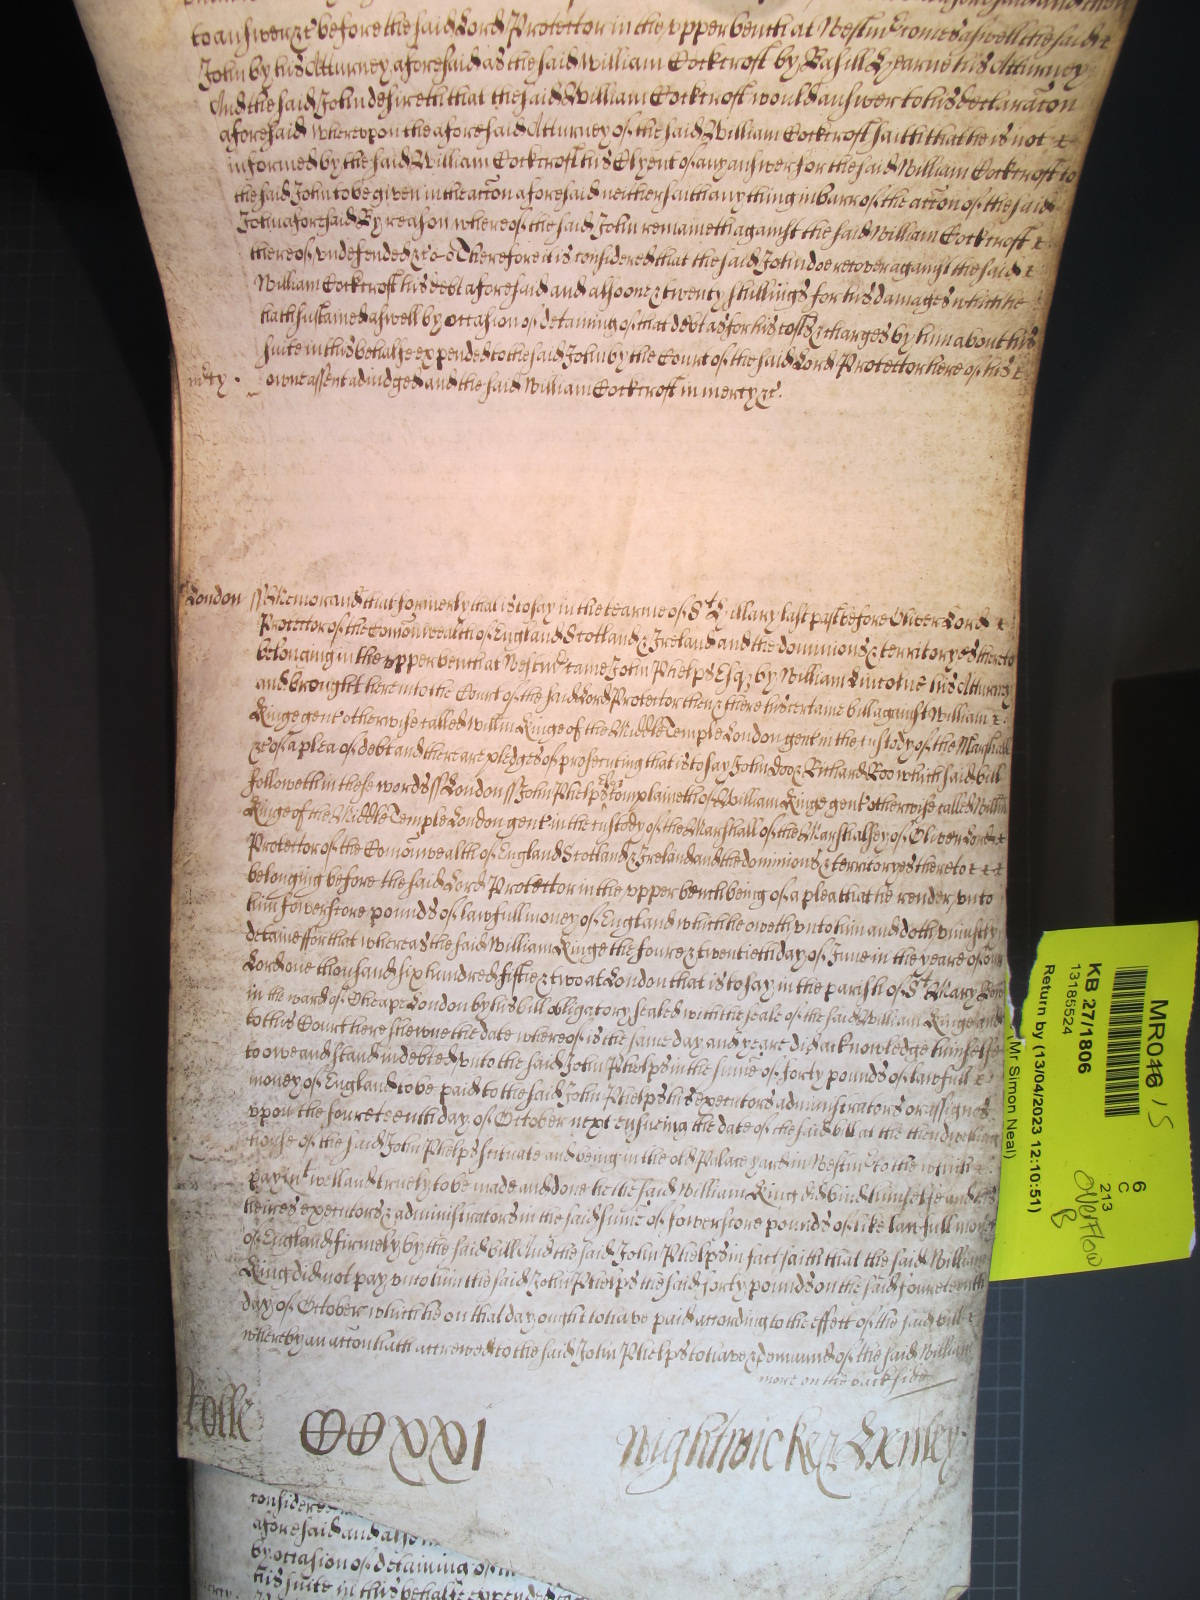 to answer &c before the said Lord Protector in the upper bench at Westmr come aswell the said
John by his Atturney aforesaid as the said William Cockcroft by Basill Hearne his Atturney
And the said John desireth that the said William Cockcroft would answer to his declaracon
aforesaid whereupon the aforesaid Atturney of the said William Cockcroft saith that he is not
informed by the said William Cockcroft his Clyent of any answer for the said William Cockcroft to
the said John to be given in the accon aforesaid neither saith any thing in barr of the accon of the said
John aforesaid By reason whereof the said John remaineth against the said William Cockcroft
thereof undefended &c Therefore it is considered that the said John doe recover against the said
William Cockcroft his debt aforesaid and alsoe one & twenty shillings for his damages which he
hath sustained aswell by occasion of detaining of that debt as for his costs & charges by him about his
suite in this behalfe expended to the said John by the Court of the said Lord Protector here of his
mcy . owne assent adiudged and the said William Cockcroft in mercy &c.
London ss Memorand that formerly that is to say in the tearme of St Hillary last past before Oliver Lord
Protector of the Comonwealth of England Scotland & Ireland and the dominions & territoryes thereto
belonging in the upper bench at Westmr came John Phelps Esqr by William Lincolne his Atturney
and brought here into the Court of the said Lord Protector then & there his certaine bill against William
Kinge gent otherwise called Willm Kinge of the Middle Temple London gent in the custody of the Marshall
&c of a plea of debt and there are pledges of prosecuting that is to say John Doo & Richard Roo which said bill
followeth in these words ss London ss John Phelps esqr complaineth of William Kinge gent otherwise called Willm
Kinge of the Middle Temple London gent in the custody of the Marshall of the Marshalsey of Oliver Lord
Protector of the Comonwealth of England Scotland & Ireland and the dominions & territoryes thereto
belonging before the said Lord Protector in the upper bench being of a plea that he render unto
him fowerscore pounds of lawfull money of England which he oweth unto him and doth uniustly
detaine ffor that whereas the said William Kinge the foure & twentieth day of June in the yeare of our
Lord one thousand six hundred fiftie & two at London that is to say in the parish of St Mary Bow
in the ward of Cheape London by his bill obligatory sealed with the seale of the said William Kinge and
to this Court here shewne the date whereof is the same day and yeare did acknowledge himselfe
to owe and stand indebted unto the said John Phelps in the sume of forty pounds of lawfull
money of England to be paid to the said John Phelps his executors administrators or assignes
upon the foureteenth day of October next ensueing the date of the said bill at the then dwelling
house of the said John Phelps scituate and being in the old Palace yard in Westmr to the which
paymt well and truely to be made and done he the said William King did bind himselfe and his
heires executors & administrators in the said sume of fowerscore pounds of like lawfull money
of England firmely by the said bill And the said John Phelps in fact saith that the said William
King did not pay unto him the said John Phelps the said forty pounds on the said foureteenth
day of October which he on that day ought to have paid according to the effect of the said bill
whereby an accon hath accrewed to the said John Phelps to have & demaund of the said William
more on the back side
Rolle CCXXI Nightwicke & Henley
considered
aforesaid and also
by occasion of detaining of
his suite in this behalfe expended to
MR046 15
KB 27/1806
13185524
Return by (13/04/2023 12:10:51)
(Mr Simon Neal)
6
C
213
overflow
B